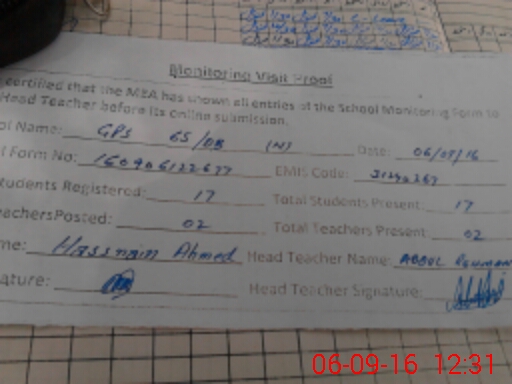 Monitoring Visit Proof
certified that the MEA has shown all entries of the School Monitoring Form to
Head Teacher before its online submission.
ol Name: GPS 65/DB (N) Date: 06/09/16
l Form No: EMIS Code:
tudents Registered: 17 Total Students Present: 17
eachersPosted: 02 Total Teachers Present: 02
me: Hassnain Ahmed Head Teacher Name: ABDUL
ature: Head Teacher Signature:
06-09-16 12:31